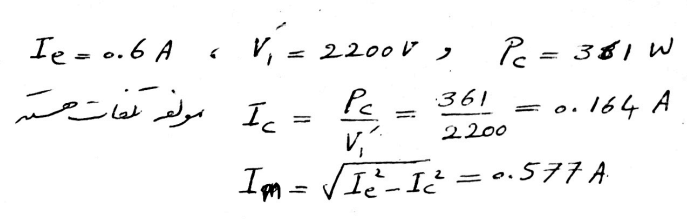 I_e = 0.6 A ، V₁′ = 2200 V و P_c = 361 W
مولفه تلفات هسته I_c = P_c / V₁′ = 361 / 2200 = 0.164 A
I_m = √(I_e² − I_c²) = 0.577 A